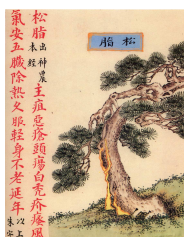 松脂
松脂出神農本經主疽惡瘡頭瘍白禿疥瘙風
氣安五臟除熱久服輕身不老延年以上朱字